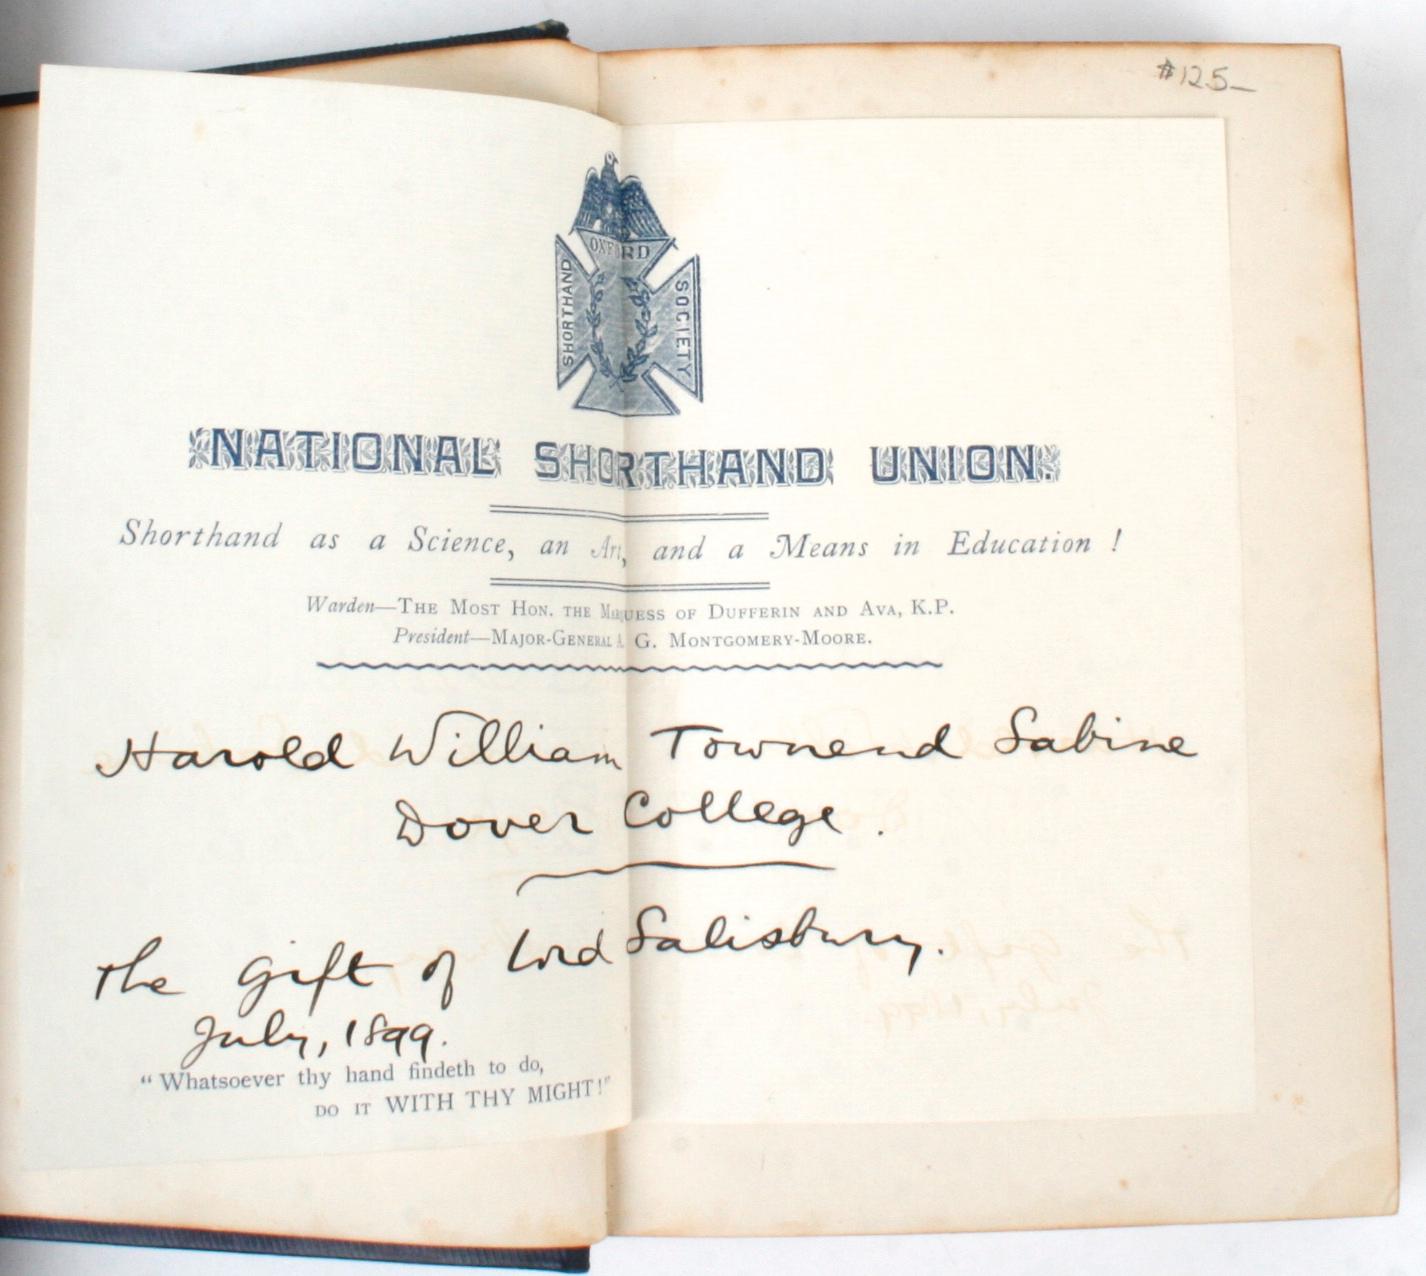 #125—
OXFORD
SHORTHAND
SOCIETY
NATIONAL SHORTHAND UNION.
Shorthand as a Science, an Art, and a Means in Education !
Warden—THE MOST HON. THE MARQUESS OF DUFFERIN AND AVA, K.P.
President—MAJOR-GENERAL A. G. MONTGOMERY-MOORE.
Harold William Townend Sabine
Dover College.
The gift of Lord Salisbury.
July, 1899.
“Whatsoever thy hand findeth to do,
DO IT WITH THY MIGHT!”